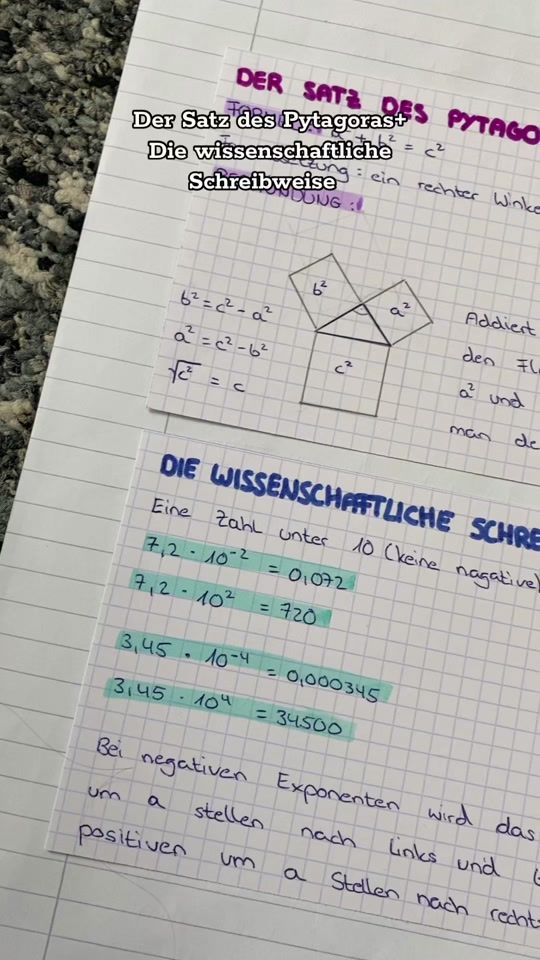 DER SATZ DES PYTAGO
Der Satz des Pytagoras+
Die wissenschaftliche
Schreibweise
+ b² = c²
: ein rechter Winke
b²
a²
c²
b² = c² - a²
a² = c² - b²
√c² = c
Addiert
den
a² und
man de
DIE WISSENSCHAFTLICHE SCHRE
Eine Zahl unter 10 (keine nagative)
7,2 · 10⁻² = 0,072
7,2 · 10² = 720
3,45 · 10⁻⁴ = 0,000345
3,45 · 10⁴ = 34500
Bei negativen Exponenten wird das
um a stellen nach links und
positiven um a Stellen nach recht